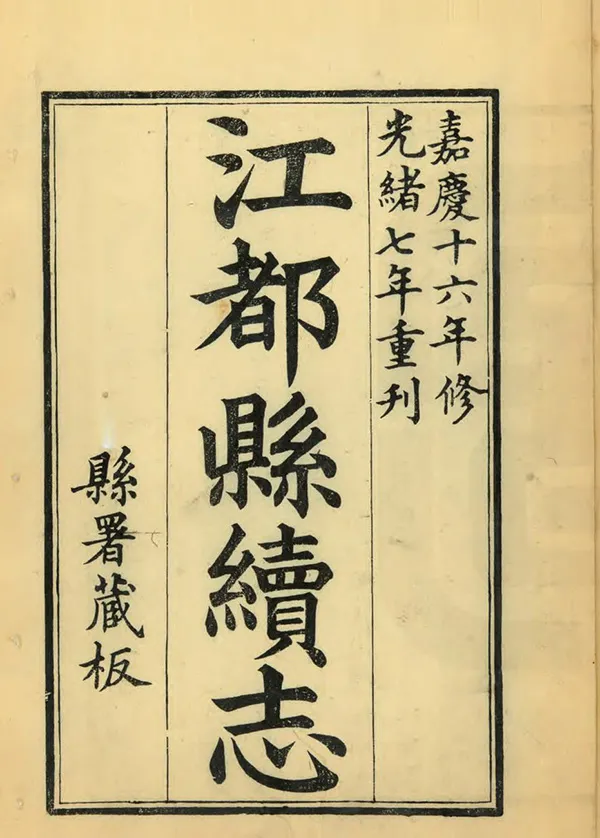 嘉慶十六年修
光緒七年重刊
江都縣續志
縣署藏板